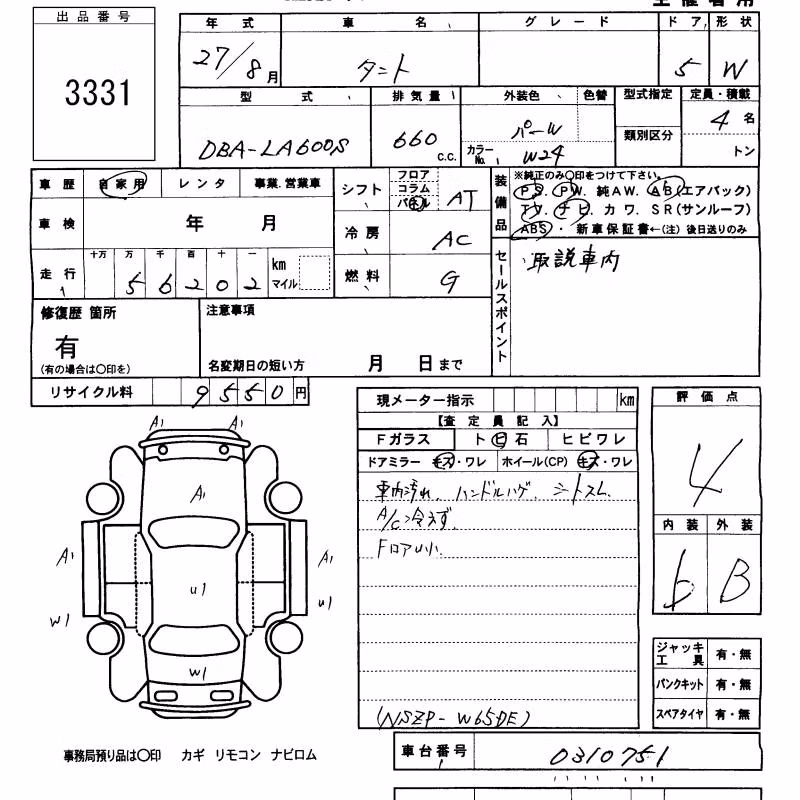 出品番号
3331
年式 車名 グレード ドア 形状
27/8月 タント 5 W
型式 排気量 外装色 色替 型式指定 定員・積載
DBA-LA600S 660 c.c. パール 類別区分 4名
カラーNo. W24 トン
車歴 自家用 レンタ 事業.営業車
シフト フロア コラム パネル AT
装備品
※純正のみ〇印をつけて下さい。
PS. PW. 純AW. AB(エアバック)
TV. ナビ. カワ. SR(サンルーフ)
ABS・新車保証書←(注)後日送りのみ
車検 年 月
冷房 AC
走行 十万 万 千 百 十 一
56202 km マイル
燃料 G
セールスポイント
取説車内
修復歴 箇所
有
(有の場合は〇印を)
注意事項
名変期日の短い方 月 日まで
リサイクル料 9550円
現メーター指示 km
【査定員記入】
Fガラス トビ石 ヒビワレ
ドアミラー キズ・ワレ ホイール(CP) キズ・ワレ
車内汚れ、ハンドルハゲ、シートスレ
A/C冷えず
FロアU小
(NSZP-W65DE)
評価点
4
内装 外装
b B
ジャッキ工具 有・無
パンクキット 有・無
スペアタイヤ 有・無
A1 A1
A1
A1 A1
U1
W1 U1
W1
事務局預り品は〇印 カギ リモコン ナビロム
車台番号 0310751